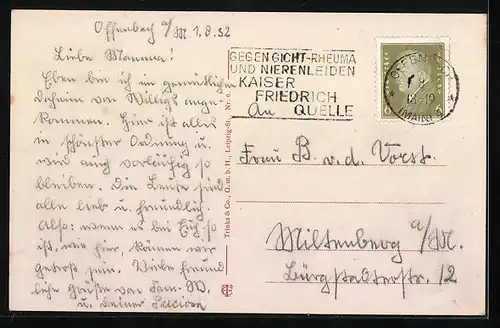 Offenbach a/M 1.8.32
Liebe Mamma!
Eben bin ich im gemütlichen
Daheim von Willigs ange-
kommen. Hier ist alles
in schönster Ordnung u.
wird auch vorläufig so
bleiben. Die Leute sind
alle lieb u. freundlich.
Also: wenn es bei Euch so
ist, wie hier, können wir
getrost sein. Viele freund
liche Grüße von Fam. W.
u. Deiner
GEGEN GICHT-RHEUMA
UND NIERENLEIDEN
KAISER
FRIEDRICH
QUELLE
OFFENBACH
(MAIN)
Trinks & Co., G.m.b.H., Leipzig-St. Nr. 6
Frau B. v. d. Vorst.
Miltenberg a/M.
Bürgstadterstr. 12